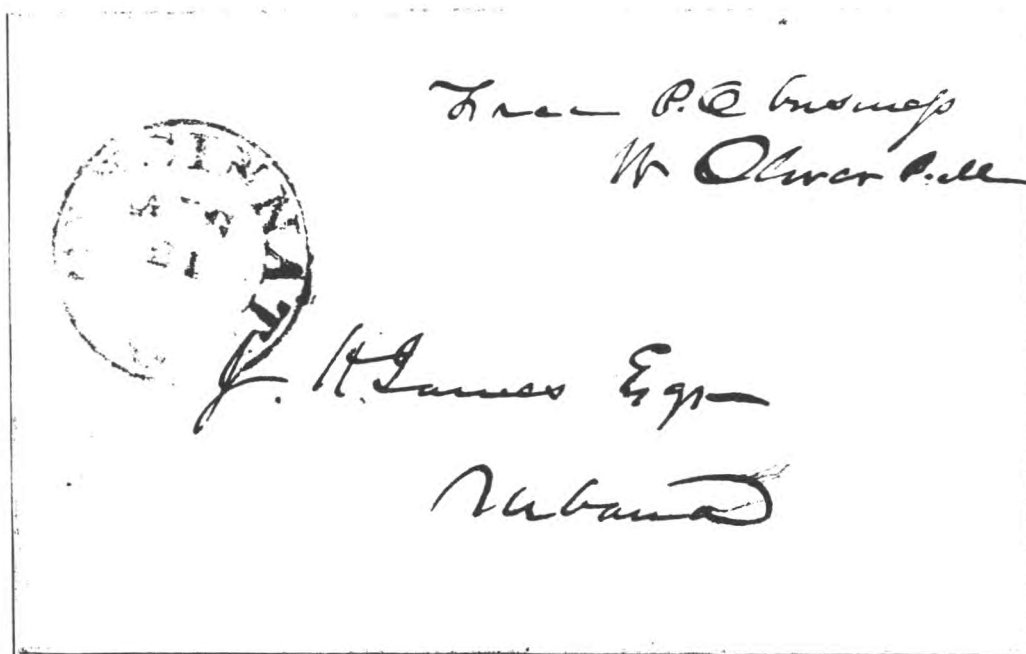 Free P.O business
W Oliver P.M
CINCINNATI
J. H. James Esqr
Urbana